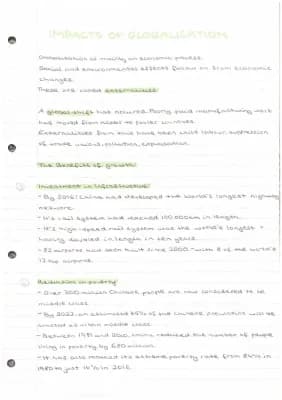 IMPACTS OF GLOBALISATION
Globalisation is mainly an economic process.
Social and environmental effects follow on from economic
changes.
These are called externalities.
A global shift has occurred. Poorly paid manufacturing work
has moved from nations to poorer countries.
Externalities from this have been child labour, suppression
of trade unions, pollution, exploitation.
The Benefits of growth:
Investment in infrastructure
- By 2016 China had developed the world's longest highway
network.
- It's rail system had reached 100 000km in length.
- It's high-speed rail system was the world's longest -
having doubled in length in ten years.
- 82 airports had been built since 2000 - with 8 of the world's
12 airports.
Reduction in poverty
- Over 300 million Chinese people are now considered to be
middle class.
- By 2022, an estimated 45% of the Chinese population will be
classed as urban middle class.
- Between 1981 and 2010, China reduced the number of people
living in poverty by 680 million.
- It has also reduced its extreme poverty rate from 84% in
1980 to just 10% in 2016.